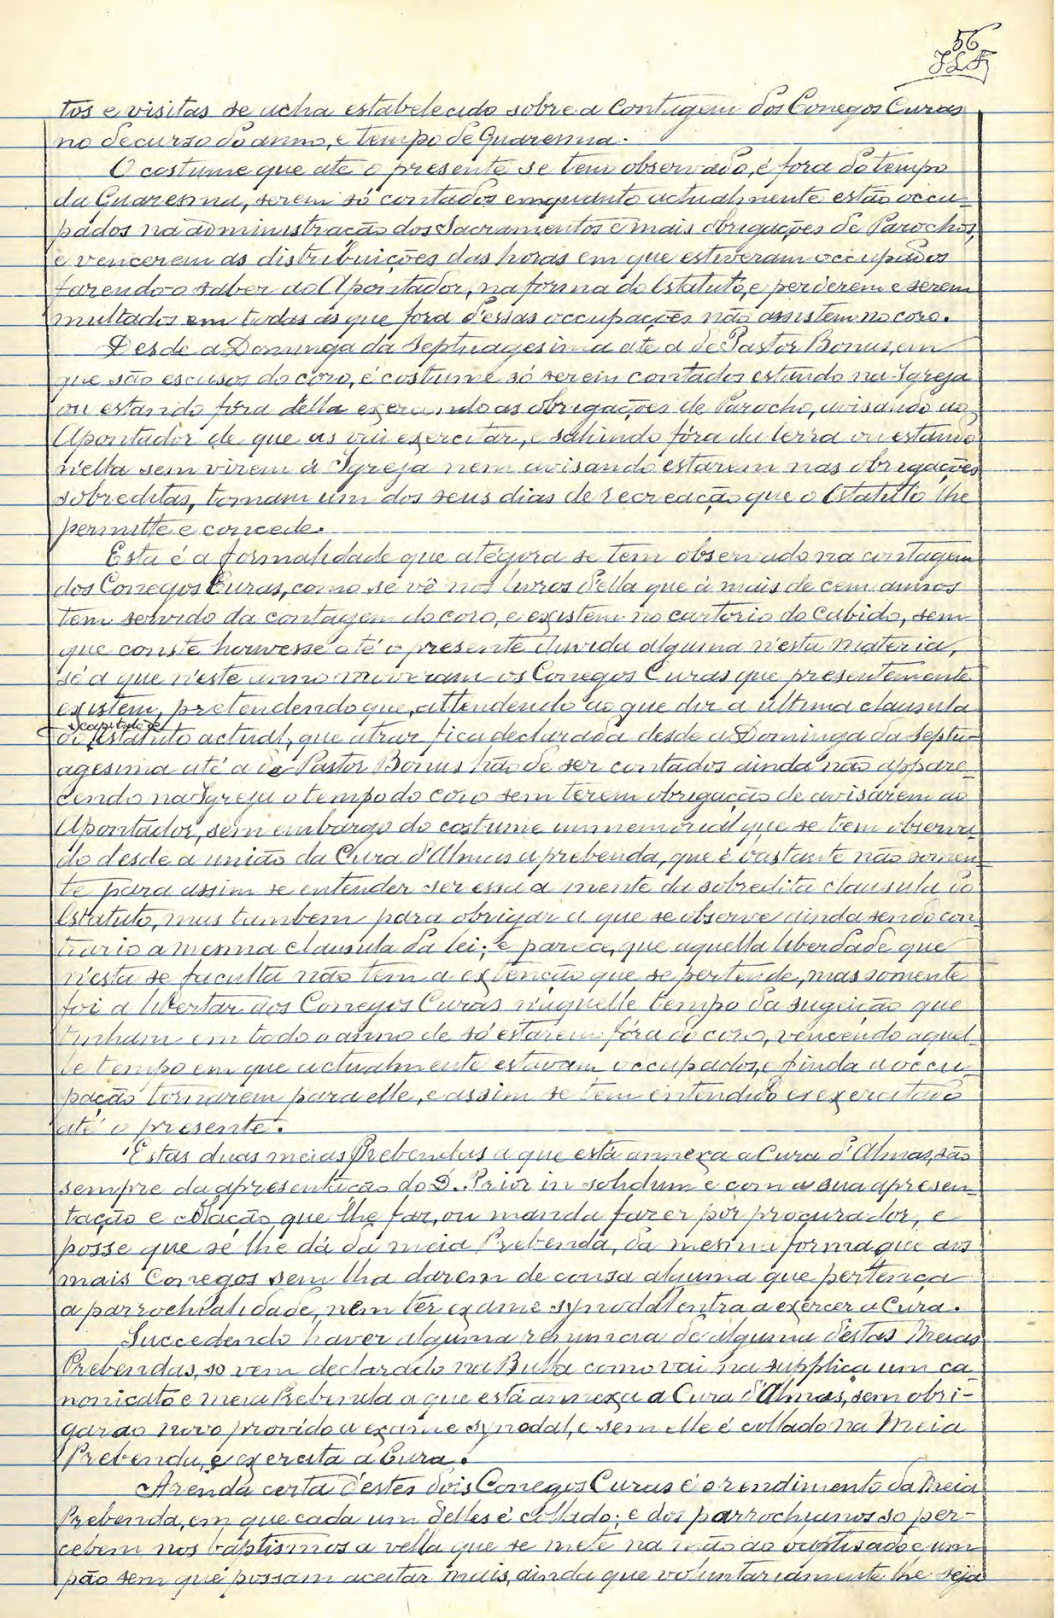 56
tos e visitas se acha estabelecido sobre a Contagem dos Conegos Curas
no decurso do anno, e tempo de Quaresma.
O costume que ate o presente se tem observado, é fora do tempo
da Quaresma, serem só contados emquanto actualmente estão occu-
pados na administração dos Sacramentos e mais obrigações de Parochos,
e vencerem as distribuições das horas em que estiveram occupados
fazendo o saber ao Apontador, na forma do Estatuto, e perderem e serem
multados em todas as que fora d'essas occupações não assistem no coro.
Desde a Dominga da Septuagesima ate a de Pastor Bonus, em
que são escusos do coro, é costume só serem contados estando na Igreja
ou estando fóra della exercendo as obrigações de Parocho, avisando ao
Apontador de que as vai exercitar, e sahindo fóra da terra ou estando
n'ella sem virem á Igreja nem avisando estarem nas obrigações
sobreditas, tomam um dos seus dias de recreação que o Estatuto lhe
permitte e concede.
Esta é a formalidade que atégora se tem observado na contagem
dos Conegos Curas, como se vê nos livros d'ella que á mais de cem annos
tem servido da contagem do coro, e existem no cartorio do Cabido, sem
que conste houvesse até o presente duvida alguma n'esta materia,
só a que n'este anno moveram os Conegos Curas que presentemente
existem, pretendendo que, attendendo ao que diz a ultima clausula
capitulo e
do Estatuto actual, que atraz fica declarada desde a Dominga da Septu-
agesima até a de Pastor Bonus hão de ser contados ainda não appare-
cendo na Igreja o tempo do coro sem terem obrigação de avisarem ao
Apontador, sem embargo do costume immemorial que se tem observa-
do desde a união da Cura d'Almas a prebenda, que é bastante não somen-
te para assim se entender ser essa a mente da sobredita clausula do
Estatuto, mas tambem para obrigar a que se observe ainda sendo con-
trario a mesma clausula da lei; e parece, que aquella liberdade que
n'esta se faculta não tem a extenção que se pertende, mas somente
foi a libertar aos Conegos Curas n'aquelle tempo da sugeição que
tinham em todo o anno de só estarem fóra do coro, vencendo aquel-
le tempo em que actualmente estavam occupados, e finda a occu-
pação tornarem para elle, e assim se tem entendido e exercitado
até o presente.
Estas duas meias Prebendas a que está annexa a Cura d'Almas, são
sempre da apresentação do D. Prior in solidum e com a sua apresen-
tação e colação, que lhe faz, ou manda fazer por procurador, e
posse que se lhe dá da meia Prebenda, da mesma forma que aos
mais Conegos sem lha darem de cousa alguma que pertença
a parrochialidade, nem ter exame synodal entra a exercer a Cura.
Succedendo haver alguma renuncia de alguma d'estas Meias
Prebendas, so vem declarado na Bulla como vai na supplica um ca-
nonicato e meia Prebenda a que está annexa a Cura d'Almas, sem obri-
gar ao novo provido a exame synodal, e sem elle é collado na Meia
Prebenda, e exercita a Cura.
A renda certa d'estes dois Conegos Curas é o rendimento da Meia
Prebenda, em que cada um d'elles é collado; e dos parrochianos so per-
cebem nos baptismos a vella que se mete na mão ao baptisado e um
pão sem que possam aceitar mais, ainda que voluntariamente lhe seja